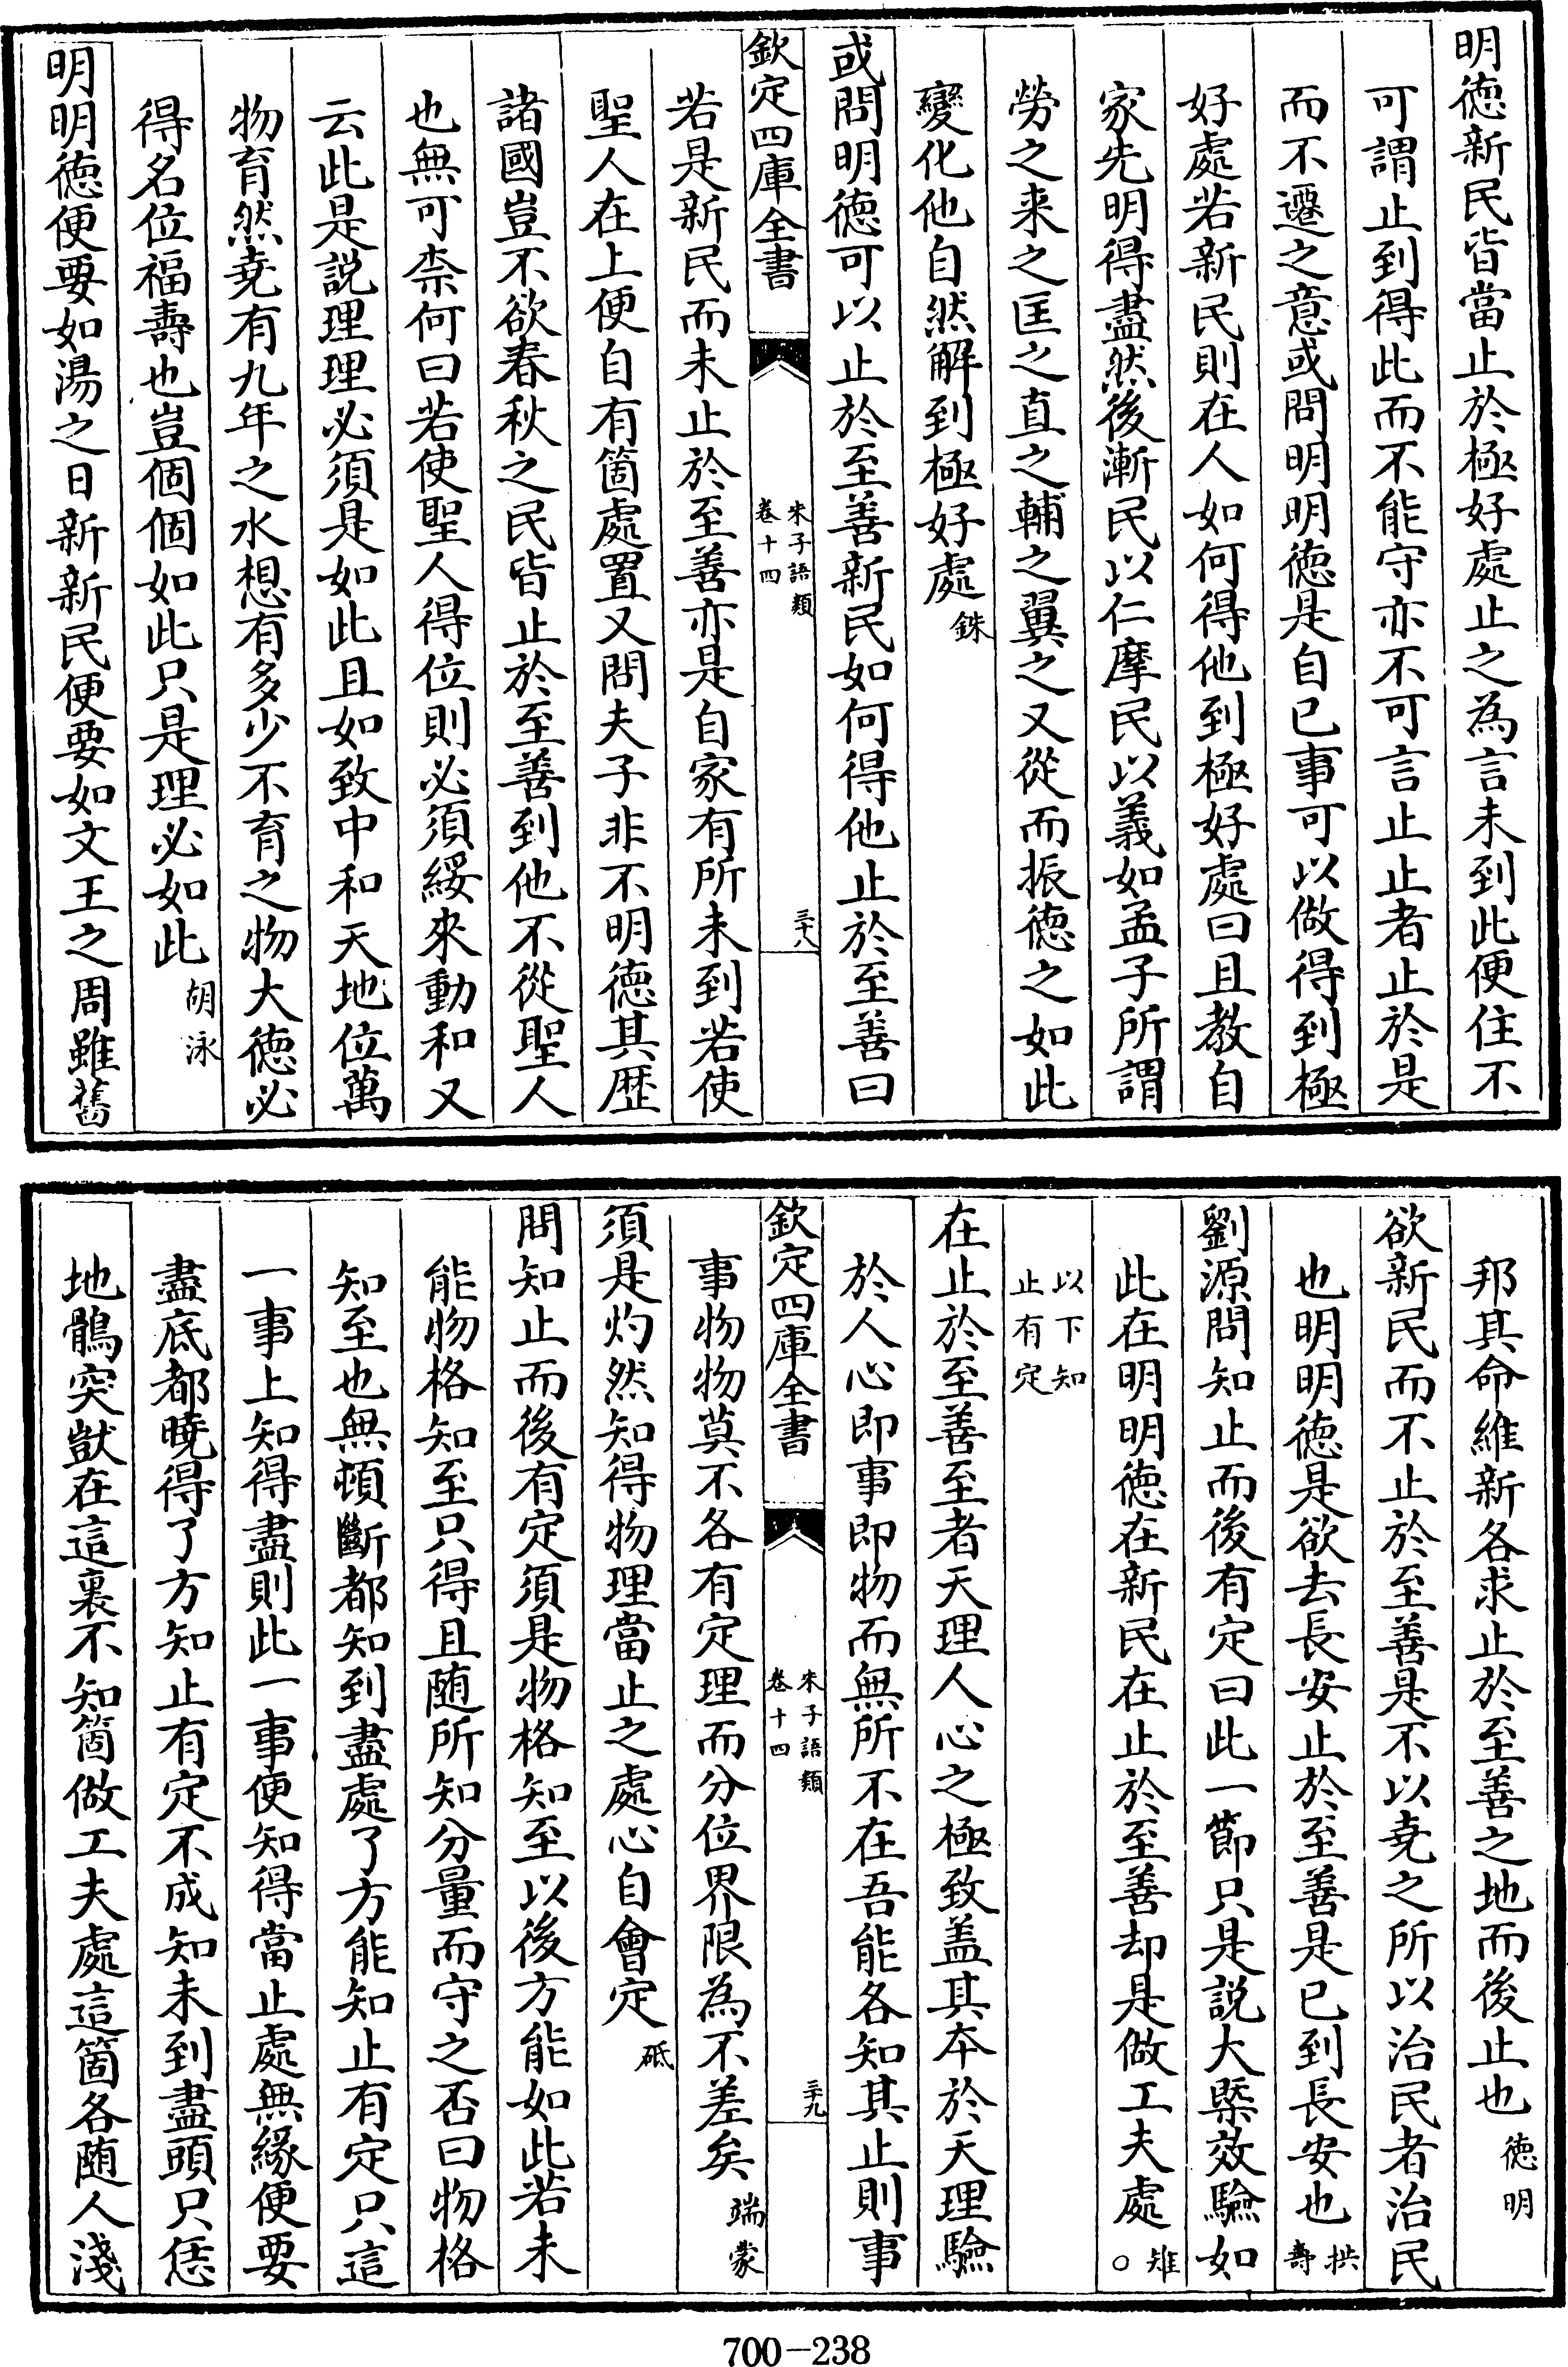 明徳新民皆當止於極好處止之為言未到此便住不
可謂止到得此而不能守亦不可言止止者止於是
而不遷之意或問明明徳是自己事可以做得到極
好處若新民則在人如何得他到極好處曰且教自
家先明得盡然後漸民以仁摩民以義如孟子所謂
勞之来之匡之直之輔之翼之又從而振徳之如此
變化他自然解到極好處銖
或問明徳可以止於至善新民如何得他止於至善曰
欽定四庫全書
朱子語類
卷十四
三十八
若是新民而未止於至善亦是自家有所未到若使
聖人在上便自有箇處置又問夫子非不明徳其歴
諸國豈不欲春秋之民皆止於至善到他不從聖人
也無可柰何曰若使聖人得位則必須綏來動和又
云此是説理理必須是如此且如致中和天地位萬
物育然堯有九年之水想有多少不育之物大徳必
得名位福壽也豈個個如此只是理必如此胡泳
明明徳便要如湯之日新新民便要如文王之周雖舊
邦其命維新各求止於至善之地而後止也徳明
欲新民而不止於至善是不以堯之所以治民者治民
也明明徳是欲去長安止於至善是已到長安也拱壽
劉源問知止而後有定曰此一節只是説大槩效驗如
此在明明徳在新民在止於至善却是做工夫處雉○
以下知
止有定
在止於至善至者天理人心之極致盖其本於天理驗
於人心即事即物而無所不在吾能各知其止則事
欽定四庫全書
朱子語類
卷十四
三十九
事物物莫不各有定理而分位界限為不差矣端蒙
須是灼然知得物理當止之處心自會定砥
問知止而後有定須是物格知至以後方能如此若未
能物格知至只得且随所知分量而守之否曰物格
知至也無頓斷都知到盡處了方能知止有定只這
一事上知得盡則此一事便知得當止處無緣便要
盡底都曉得了方知止有定不成知未到盡頭只恁
地鶻突獃在這裏不知箇做工夫處這箇各随人淺
700-238